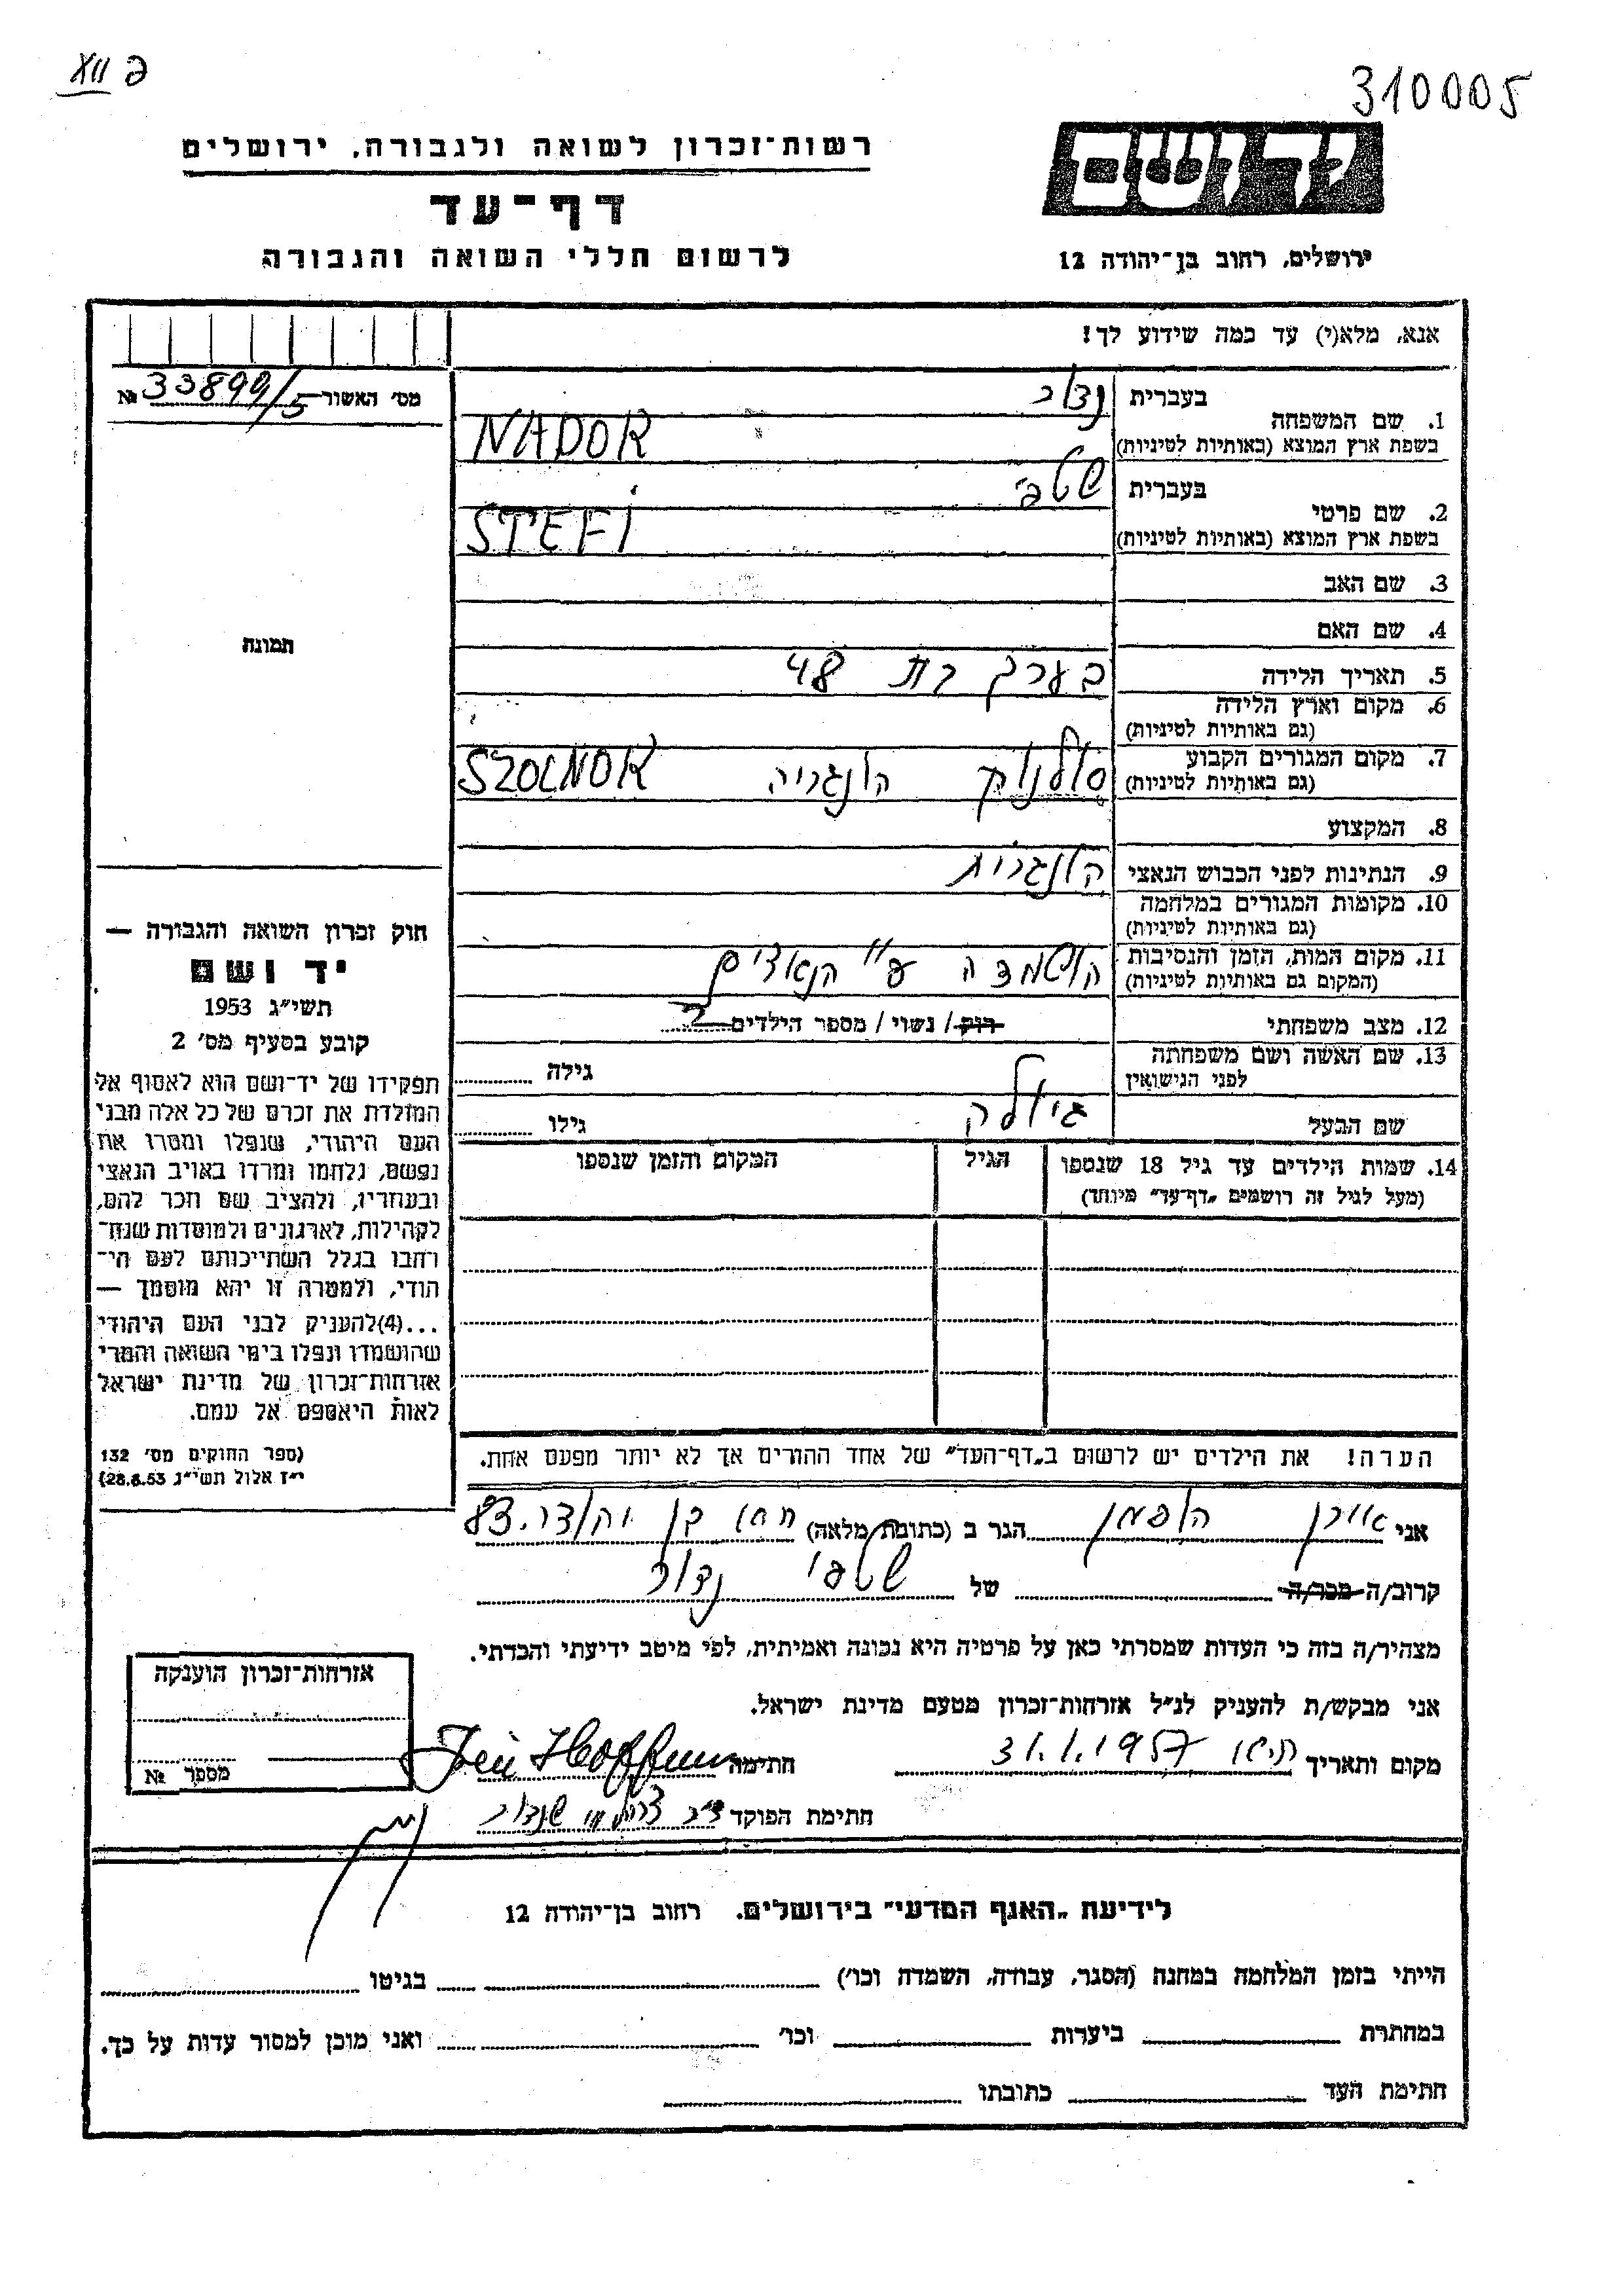 XII פ
310005
יד ושם
ירושלים, רחוב בן־יהודה 12
רשות־זכרון לשואה ולגבורה, ירושלים
דף־עד
לרשום חללי השואה והגבורה
אנא, מלא(י) עד כמה שידוע לך!
מס׳ האשור № 33899/5
1. שם המשפחה
בעברית נדור
בשפת ארץ המוצא (באותיות לטיניות) NADOR
2. שם פרטי
בעברית שטפי
בשפת ארץ המוצא (באותיות לטיניות) STEFI
3. שם האב
4. שם האם
5. תאריך הלידה בערך בת 48
6. מקום וארץ הלידה
(גם באותיות לטיניות)
7. מקום המגורים הקבוע
(גם באותיות לטיניות) סולנוק הונגריה SZOLNOK
8. המקצוע
9. הנתינות לפני הכבוש הנאצי הונגרית
10. מקומות המגורים במלחמה
(גם באותיות לטיניות)
11. מקום המות, הזמן והנסיבות
(המקום גם באותיות לטיניות) הושמדה ע״י הנאצים
12. מצב משפחתי רוק / נשוי / מספר הילדים 2
13. שם האשה ושם משפחתה
לפני הנישואין גילה
שם הבעל גיולה גילו
14. שמות הילדים עד גיל 18 שנספו הגיל המקום והזמן שנספו
(מעל לגיל זה רושמים „דף־עד״ מיוחד)
הערה! את הילדים יש לרשום ב„דף־העד״ של אחד ההורים אך לא יותר מפעם אחת.
תמונה
חוק זכרון השואה והגבורה —
יד ושם
תשי״ג 1953
קובע בסעיף מס׳ 2
תפקידו של יד־ושם הוא לאסוף אל
המולדת את זכרם של כל אלה מבני
העם היהודי, שנפלו ומסרו את
נפשם, נלחמו ומרדו באויב הנאצי
ובעוזריו, ולהציב שם וזכר להם,
לקהילות, לארגונים ולמוסדות שנח־
רבו בגלל השתייכותם לעם הי־
הודי, ולמטרה זו יהא מוסמך —
...(4)להעניק לבני העם היהודי
שהושמדו ונפלו בימי השואה והמרי
אזרחות־זכרון של מדינת ישראל
לאות היאספם אל עמם.
(ספר החוקים מס׳ 132
י״ז אלול תשי״ג 28.8.53)
אני הופמן הגר ב (כתובת מלאה) 83
קרוב/ה מכר/ה של שטפי נדור
מצהיר/ה בזה כי העדות שמסרתי כאן על פרטיה היא נכונה ואמיתית, לפי מיטב ידיעתי והכרתי.
אני מבקש/ת להעניק לנ״ל אזרחות־זכרון מטעם מדינת ישראל.
מקום ותאריך 31.1.1957 חתימה Hoffman
חתימת הפוקד
אזרחות־זכרון הוענקה
מספר №
לידיעת „האגף המדעי״ בירושלים, רחוב בן־יהודה 12
הייתי בזמן המלחמה במחנה (הסגר, עבודה, השמדה וכו׳) בגיטו
במחתרת ביערות וכו׳ ואני מוכן למסור עדות על כך.
חתימת העד כתובתו